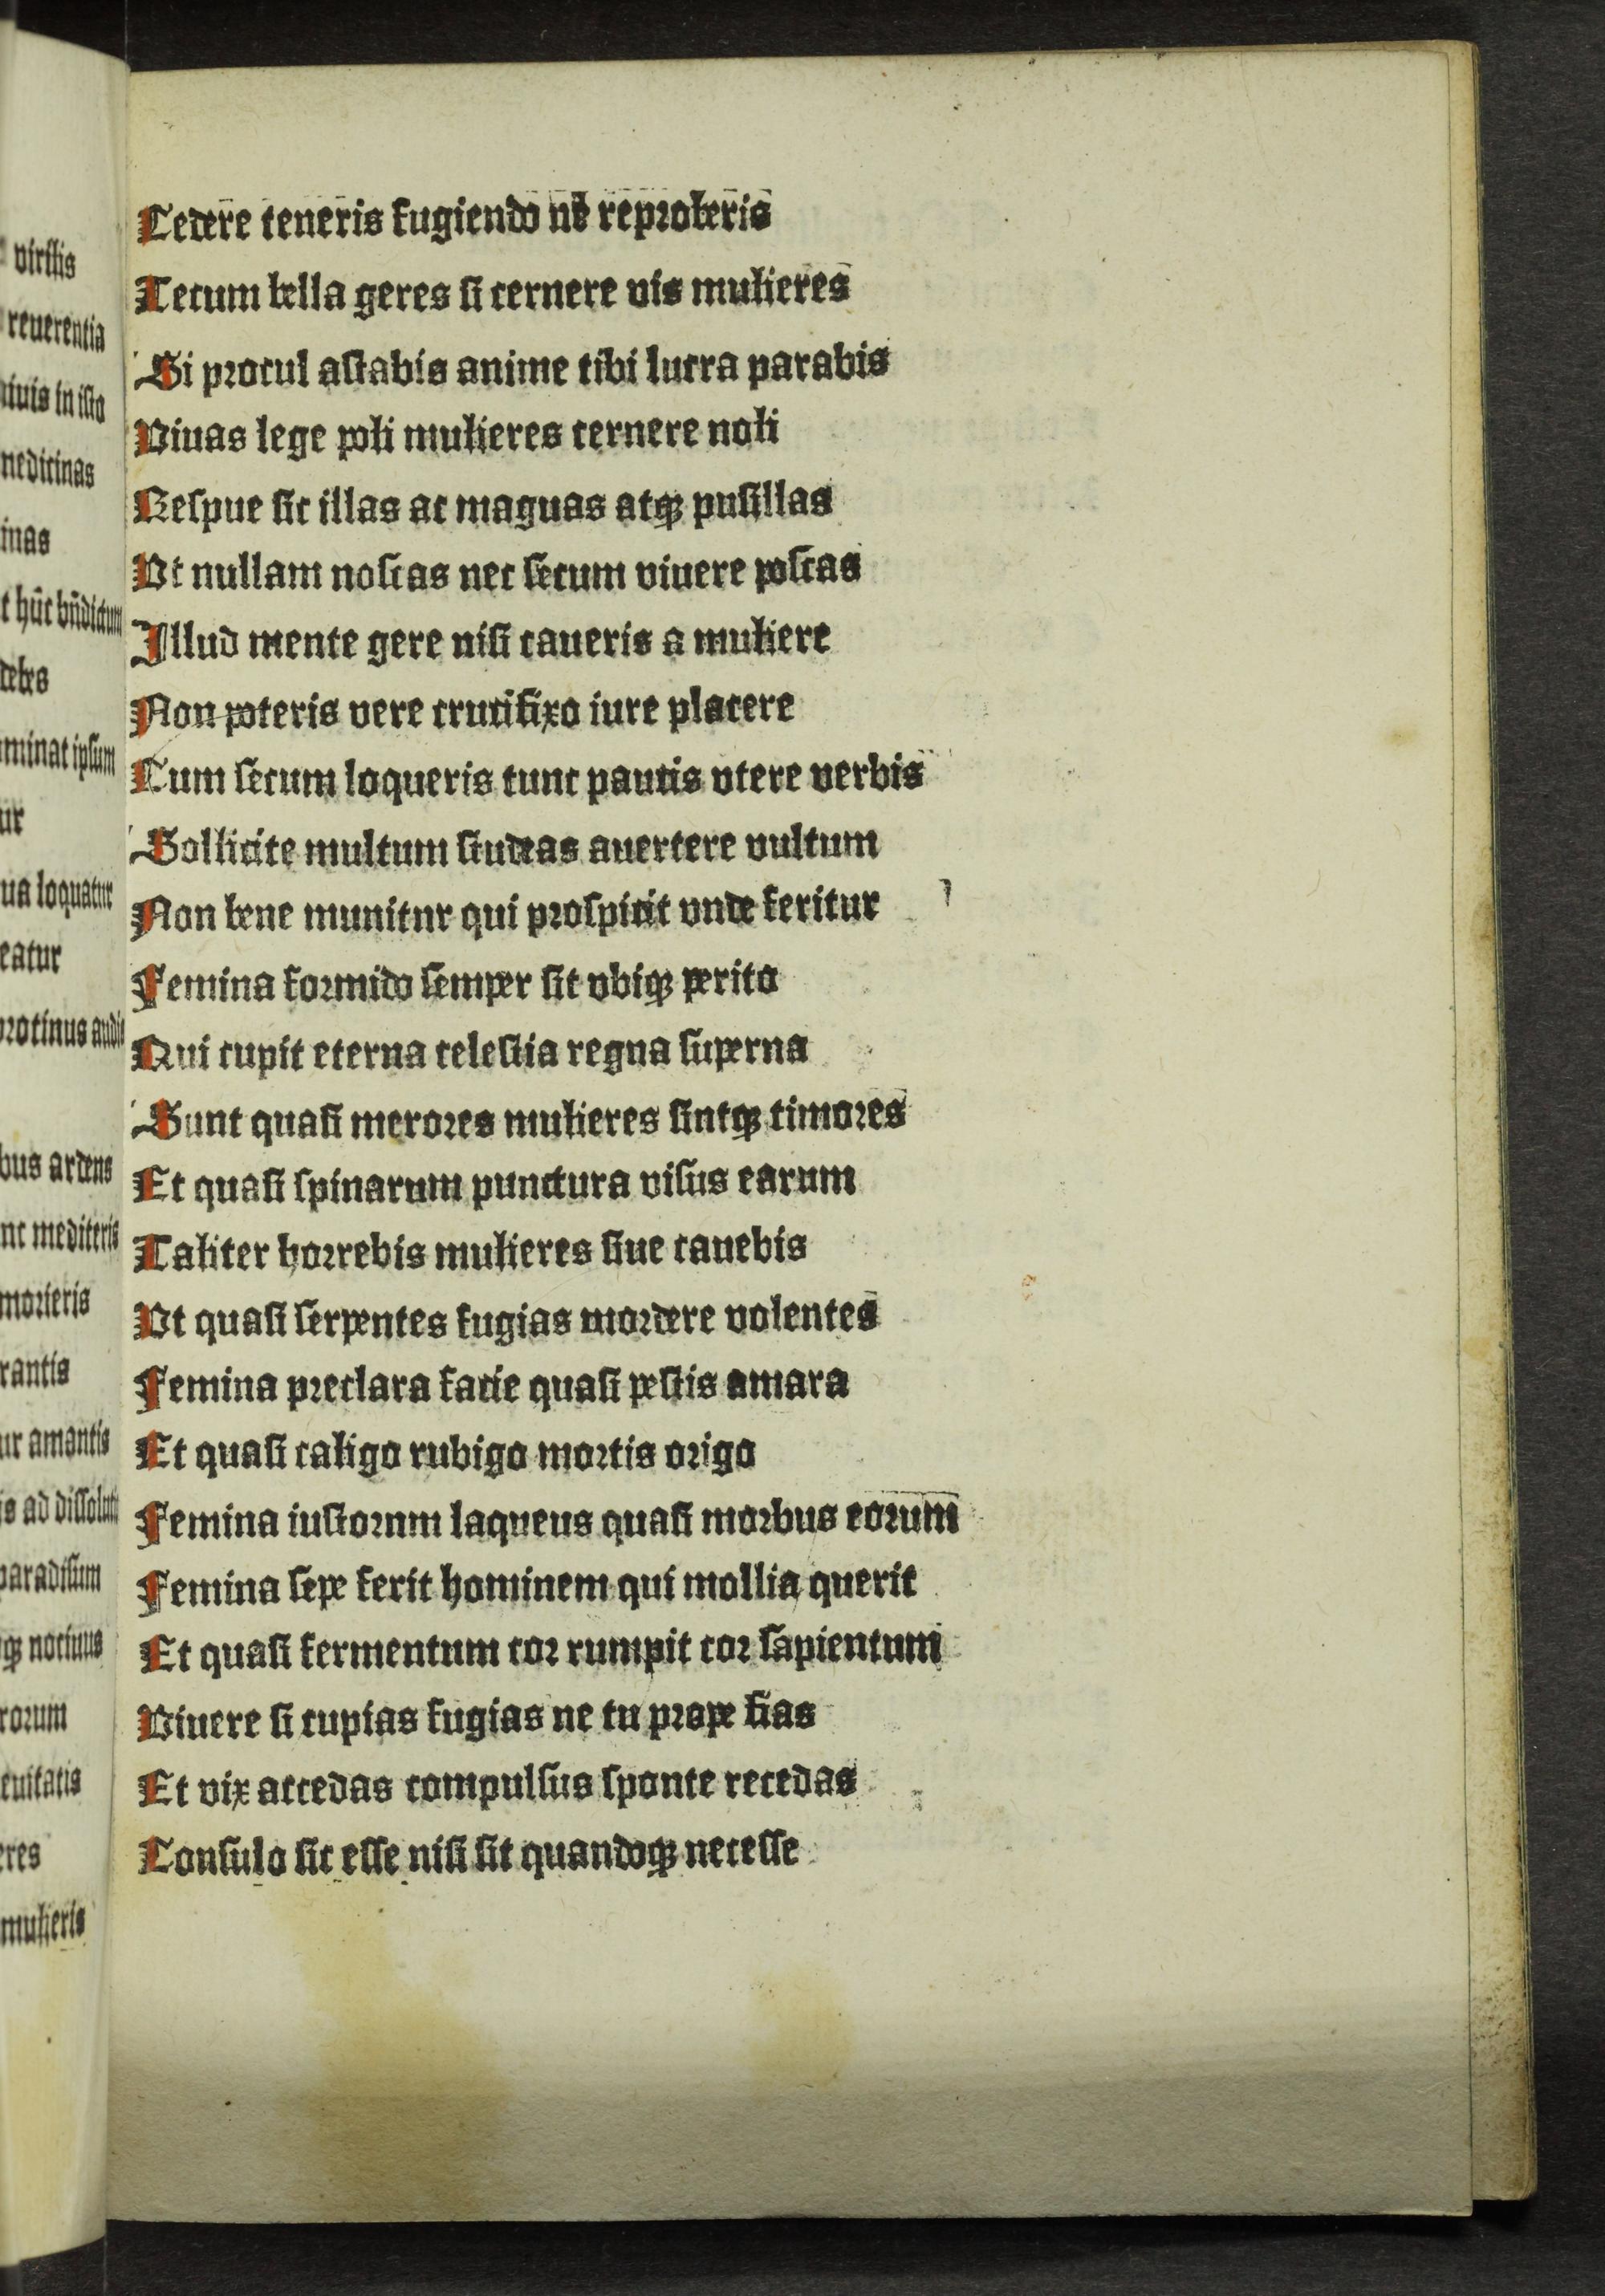 virilis
reuerentia
in isto
medicinas
hūc bn̄dictum
debes
ipsum
loquatur
protinus
ardens
mediteris
morieris
amantis
ad
paradisum
qꝫ nociuus
mulieris
Cedere teneris fugiendo ne reproberis
Tecum bella geres si cernere vis mulieres
Si procul astabis anime tibi lucra parabis
Viuas lege poli mulieres cernere noli
Respue sic illas ac maguas atqꝫ pusillas
Vt nullam noscas nec secum viuere poscas
Illud mente gere nisi caueris a muliere
Non poteris vere crucifixo iure placere
Cum secum loqueris tunc paucis vtere verbis
Sollicite multum studeas auertere vultum
Non bene munitnr qui prospicit vnde feritur
Femina formido semper sit vbiqꝫ perito
Qui cupit eterna celestia regna superna
Sunt quasi merores mulieres sintqꝫ timores
Et quasi spinarum punctura visus earum
Taliter horrebis mulieres siue cauebis
Vt quasi serpentes fugias mordere volentes
Femina preclara facie quasi pestis amara
Et quasi caligo rubigo mortis origo
Femina iustornm laqueus quasi morbus eorum
Femina sepe ferit hominem qui mollia querit
Et quasi fermentum cor rumpit cor sapientum
Viuere si cupias fugias ne tu prope fias
Et vix accedas compulsus sponte recedas
Consulo sic esse nisi sit quandoqꝫ necesse